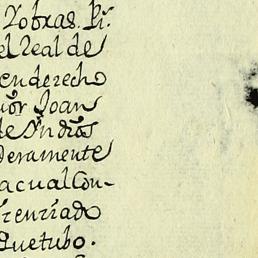 Zobras. Pr.
el Real de
en derecho
uor Joan
de Indias
deramente
acual Con-
frenriado
que tubo.